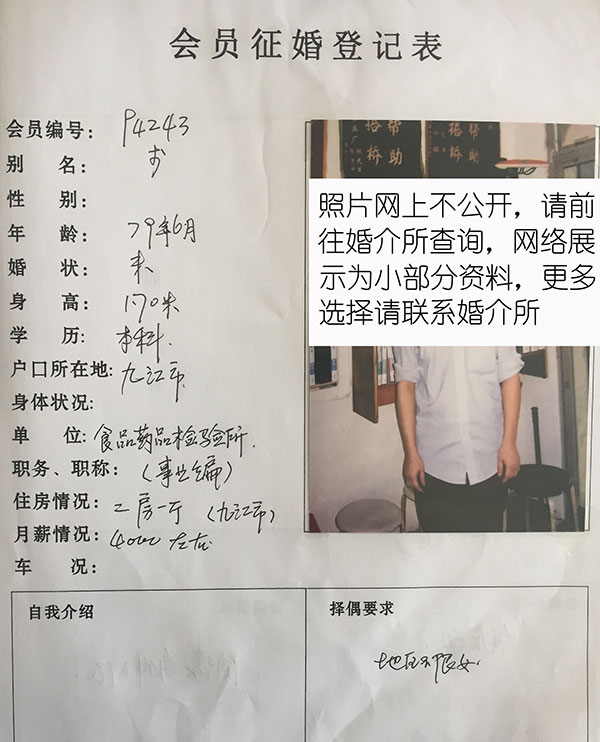 会员征婚登记表
会员编号: P4243
别 名:
性 别:
年 龄: 79年6月
婚 状: 未
身 高: 170米
学 历: 本科
户口所在地: 九江市
身体状况:
单 位: 食品药品检验所.
职务、职称: (事业编)
住房情况: 二房一厅 (九江市)
月薪情况: 4000左右
车 况:
帮助
搭桥
帮助
搭桥
照片网上不公开，请前
往婚介所查询，网络展
示为小部分资料，更多
选择请联系婚介所
自我介绍
择偶要求
地区不限女